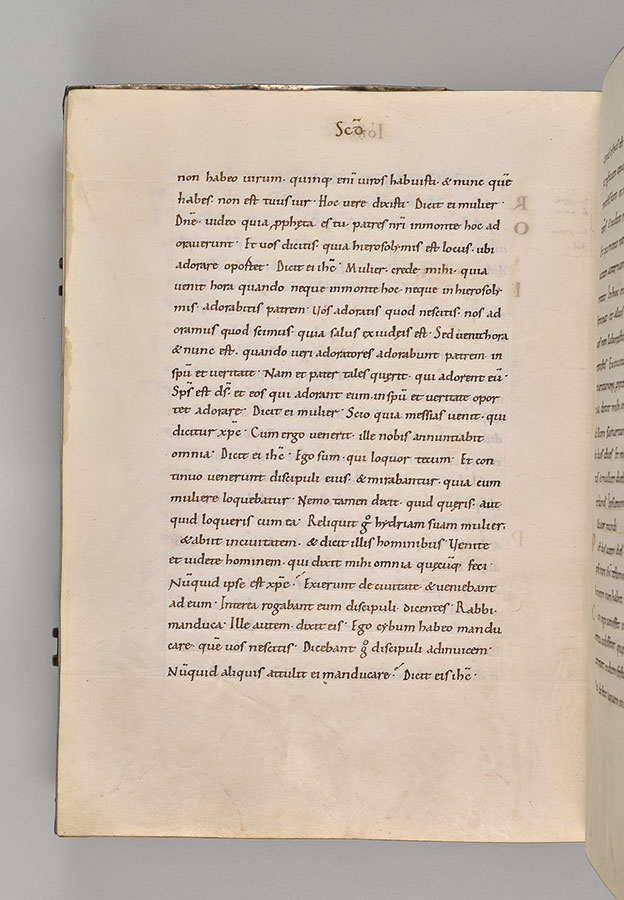 Scd̄
non habeo uirum· quinq; eni᷒ uiros habuisti· & nunc quē
habes· non est tuus uir· Hoc uere dixisti· Dicit ei mulier·
Dnē· uideo quia ꝓpheta es tu· patres nr̄i inmonte hoc ad
orauerunt· Et uos dicitis· quia hierosolymis est locus· ubi
adorare oportet· Dicit ei ihc̄· Mulier· crede mihi· quia
uenit hora quando neque inmonte hoc· neque in hierosoly
mis· adorabitis patrem· Uos adoratis quod nescitis· nos ad
oramus quod scimus· quia salus exiudęis est· Sed uenit hora
& nunc est· quando ueri adoratores adorabunt patrem in
spū et ueritate· Nam et pater tales quęrit· qui adorent eū·
Sps̄ est ds̄· et eos qui adorant eum· in spū et ueritate opor
tet adorare· Dicit ei mulier· Scio quia messias uenit· qui
dicitur xpc̄· Cum ergo uenerit· ille nobis annuntiabit
omnia· Dicit ei ihc̄· Ego sum· qui loquor tecum· Et con
tinuo uenerunt discipuli eius· & mirabantur· quia cum
muliere loquebatur· Nemo tamen dixit· quid quęris· aut
quid loqueris cum ea· Reliquit g̊ hydriam suam mulier·
& abiit inciuitatem· & dicit illis hominibus Uenite
et uidete hominem· qui dixit mihi omnia quęcūq; feci·
Nūquid ipse est xpc̄· Exierunt de ciuitate & ueniebant
ad eum· Interea rogabant eum discipuli dicentes· Rabbi·
manduca· Ille autem dixit eis· Ego cybum habeo mandu
care· quē uos nescitis· Dicebant g̊ discipuli adinuicem·
Nūquid aliquis attulit ei manducare· Dicit eis ihc̄·